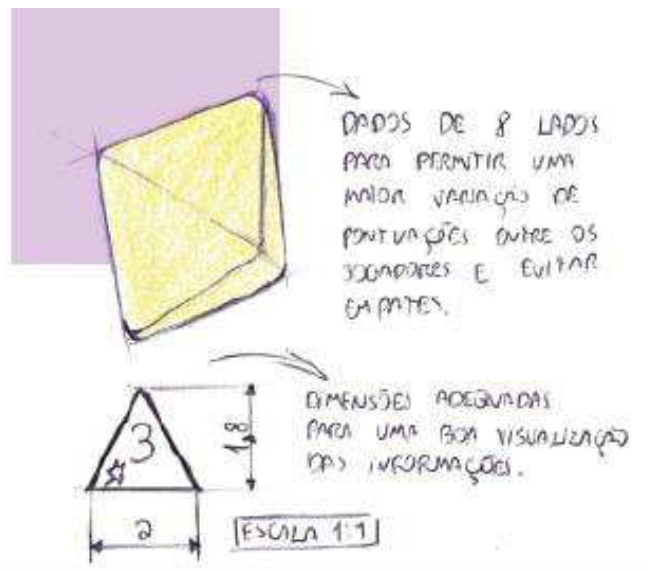 DADOS DE 8 LADOS
PARA PERMITIR UMA
MAIOR VARIAÇÃO DE
PONTUAÇÕES ENTRE OS
JOGADORES E EVITAR
EMPATES.
DIMENSÕES ADEQUADAS
PARA UMA BOA VISUALIZAÇÃO
DAS INFORMAÇÕES.
3
1,8
2
ESCALA 1:1